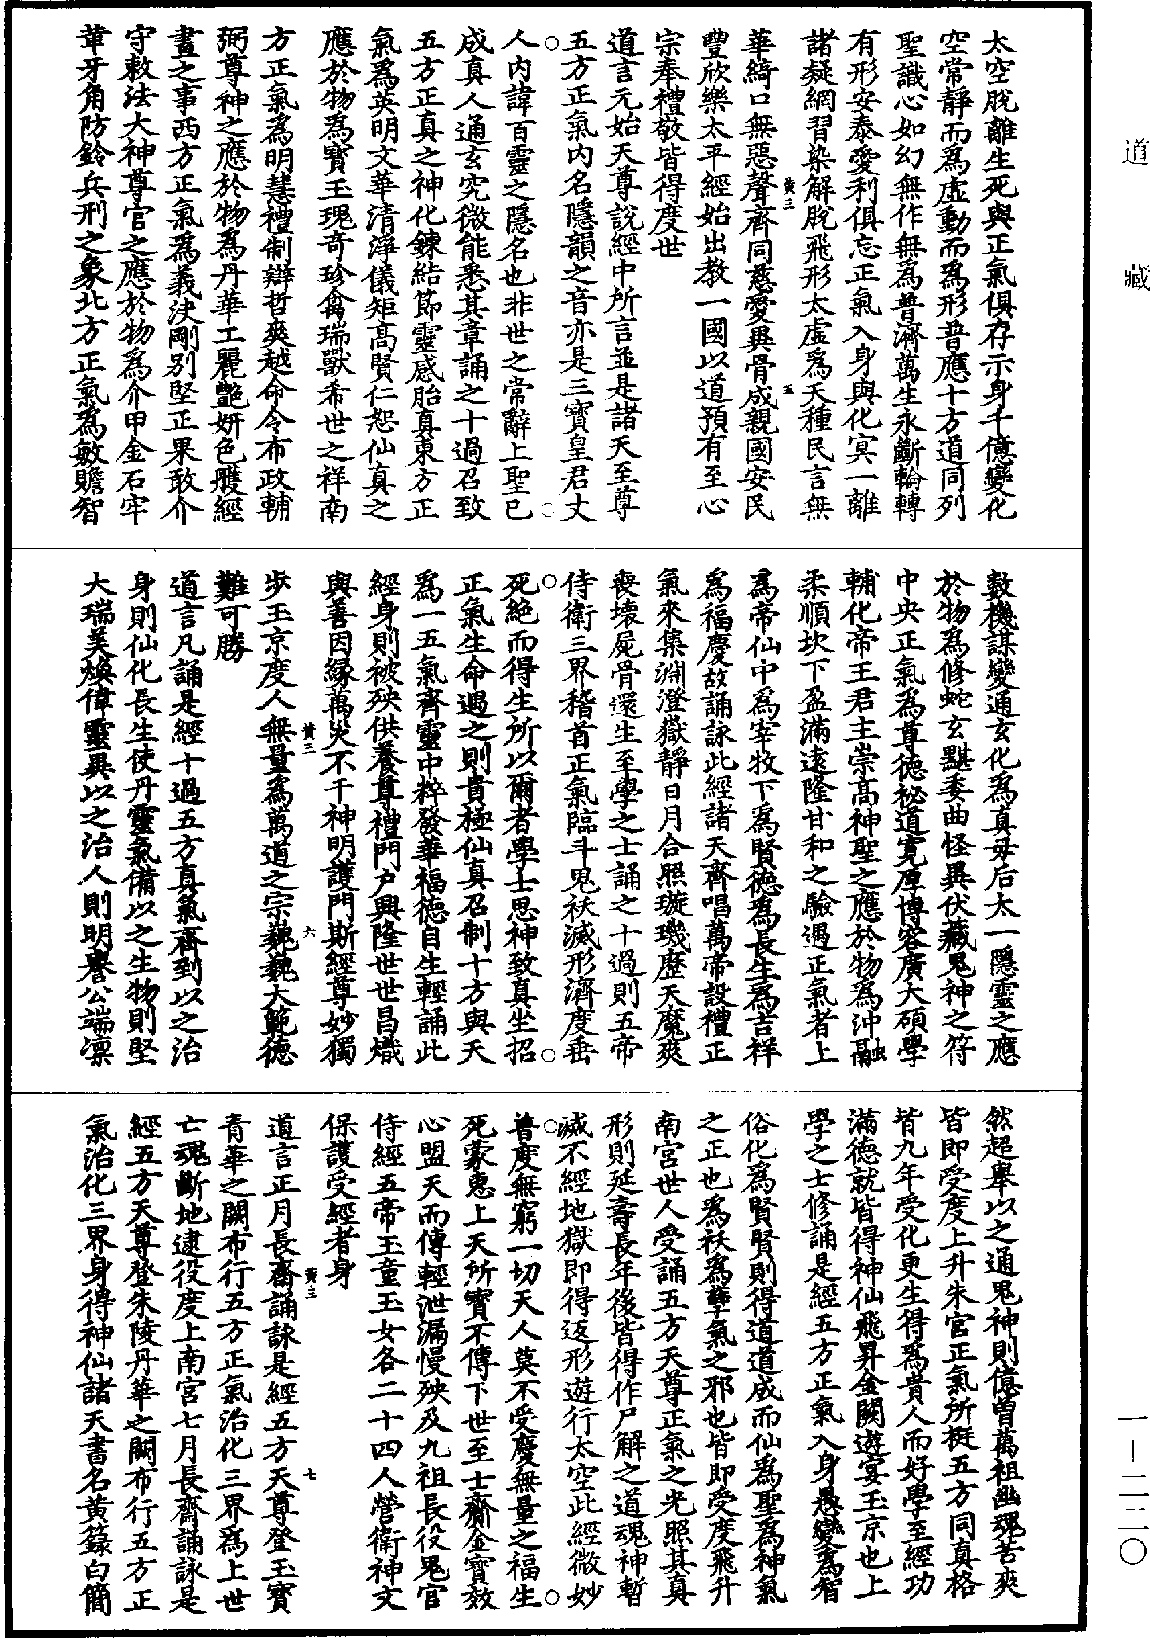 道藏
太空脫離生死與正氣俱存示身千億變化
空常靜而為虛動而為形普應十方道同列
聖識心如幻無作無為普濟萬生永斷輪轉
有形安泰愛利俱忘正氣入身與化冥一離
諸疑網習染解脫飛形太虛為天種民言無
黃三 五
華綺口無惡聲齊同慈愛異骨成親國安民
豐欣樂太平經始出教一國以道預有至心
宗奉禮敬皆得度世
道言元始天尊說經中所言並是諸天至尊
五方正氣內名隱韻之音亦是三寶皇君丈
人內諱百靈之隱名也非世之常辭上聖已
成真人通玄究微能悉其章誦之十過召致
五方正真之神化鍊結節靈感胎真東方正
氣為英明文華清淨儀矩高賢仁恕仙真之
應於物為寶玉瑰奇珍禽瑞獸希世之祥南
方正氣為明慧禮制辯哲爽越命令布政輔
弼尊神之應於物為丹華工麗艷妍色雘經
畫之事西方正氣為義決剛別堅正果敢介
守敕法大神尊官之應於物為介甲金石牢
革牙角防鈐兵刑之象北方正氣為敏贍智
數機謀變通玄化為真毋后太一隱靈之應
於物為修蛇玄黮委曲怪異伏藏鬼神之符
中央正氣為尊德秘道寬厚博容廣大碩學
輔化帝王君主崇高神聖之應於物為沖融
柔順坎下盈滿遠隆甘和之驗遇正氣者上
為帝仙中為宰牧下為賢德為長生為吉祥
為福慶故誦詠此經諸天齊唱萬帝設禮正
氣來集淵澄嶽靜日月合照璇璣歷天魔爽
喪壞屍骨還生至學之士誦之十過則五帝
侍衛三界稽首正氣臨斗鬼祅滅形濟度垂
死絕而得生所以爾者學士思神致真坐招
正氣生命遇之則貴極仙真召制十方與天
為一五氣齊靈中粹發華福德自生輕誦此
經身則被殃供養尊禮門戶興隆世世昌熾
與善因緣萬災不干神明護門斯經尊妙獨
黃三 六
步玉京度人無量為萬道之宗巍巍大範德
難可勝
道言凡誦是經十過五方真氣齊到以之治
身則仙化長生使丹靈氣備以之生物則堅
大瑞美煥偉靈異以之治人則明譽公端凜
然超舉以之通鬼神則億曾萬祖幽魂苦爽
皆即受度上升朱宮正氣所挺五方同真格
皆九年受化更生得為貴人而好學至經功
滿德就皆得神仙飛昇金闕遊宴玉京也上
學之士修誦是經五方正氣入身愚變為智
俗化為賢賢則得道道成而仙為聖為神氣
之正也為祅為孽氣之邪也皆即受度飛升
南宮世人受誦五方天尊正氣之光照其真
形則延壽長年後皆得作尸解之道魂神暫
滅不經地獄即得返形遊行太空此經微妙
普度無窮一切天人莫不受慶無量之福生
死蒙惠上天所寶不傳下世至士齎金寶效
心盟天而傳輕泄漏慢殃及九祖長役鬼官
侍經五帝玉童玉女各二十四人營衛神文
保護受經者身
黃三 七
道言正月長齋誦詠是經五方天尊登玉寶
青華之闕布行五方正氣治化三界為上世
亡魂斷地逮役度上南宮七月長齋誦詠是
經五方天尊登朱陵丹華之闕布行五方正
氣治化三界身得神仙諸天書名黃籙白簡
一—二二〇